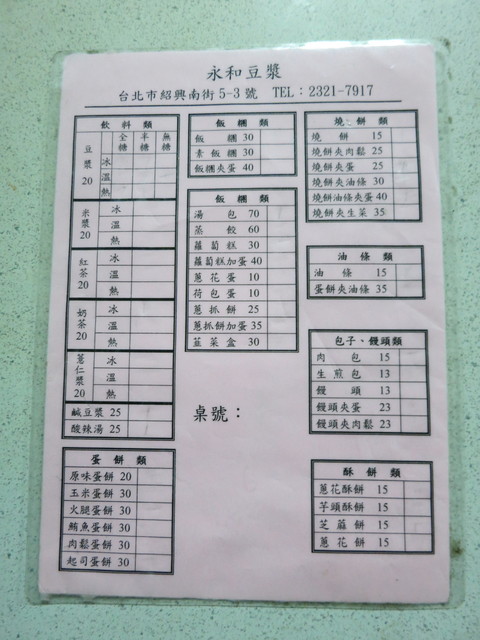 永和豆漿
台北市紹興南街5-3號 TEL：2321-7917
飲料類
全糖 半糖 無糖
豆漿 20
冰
溫
熱
米漿 20
冰
溫
熱
紅茶 20
冰
溫
熱
奶茶 20
冰
溫
熱
薏仁漿 20
冰
溫
熱
鹹豆漿 25
酸辣湯 25
蛋餅類
原味蛋餅 20
玉米蛋餅 30
火腿蛋餅 30
鮪魚蛋餅 30
肉鬆蛋餅 30
起司蛋餅 30
飯糰類
飯糰 30
素飯糰 30
飯糰夾蛋 40
飯糰類
湯包 70
蒸餃 60
蘿蔔糕 30
蘿蔔糕加蛋 40
蔥花蛋 10
荷包蛋 10
蔥抓餅 25
蔥抓餅加蛋 35
韮菜盒 30
桌號：
燒餅類
燒餅 15
燒餅夾肉鬆 25
燒餅夾蛋 25
燒餅夾油條 30
燒餅油條夾蛋 40
燒餅夾生菜 35
油條類
油條 15
蛋餅夾油條 35
包子、饅頭類
肉包 15
生煎包 13
饅頭 13
饅頭夾蛋 23
饅頭夾肉鬆 23
酥餅類
蔥花酥餅 15
芋頭酥餅 15
芝蔴餅 15
蔥花餅 15